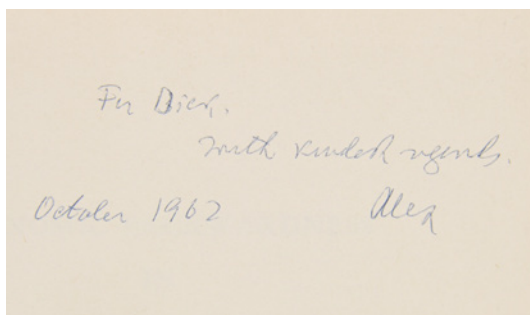 For Dick.
with kindest regards.
October 1962 Alex